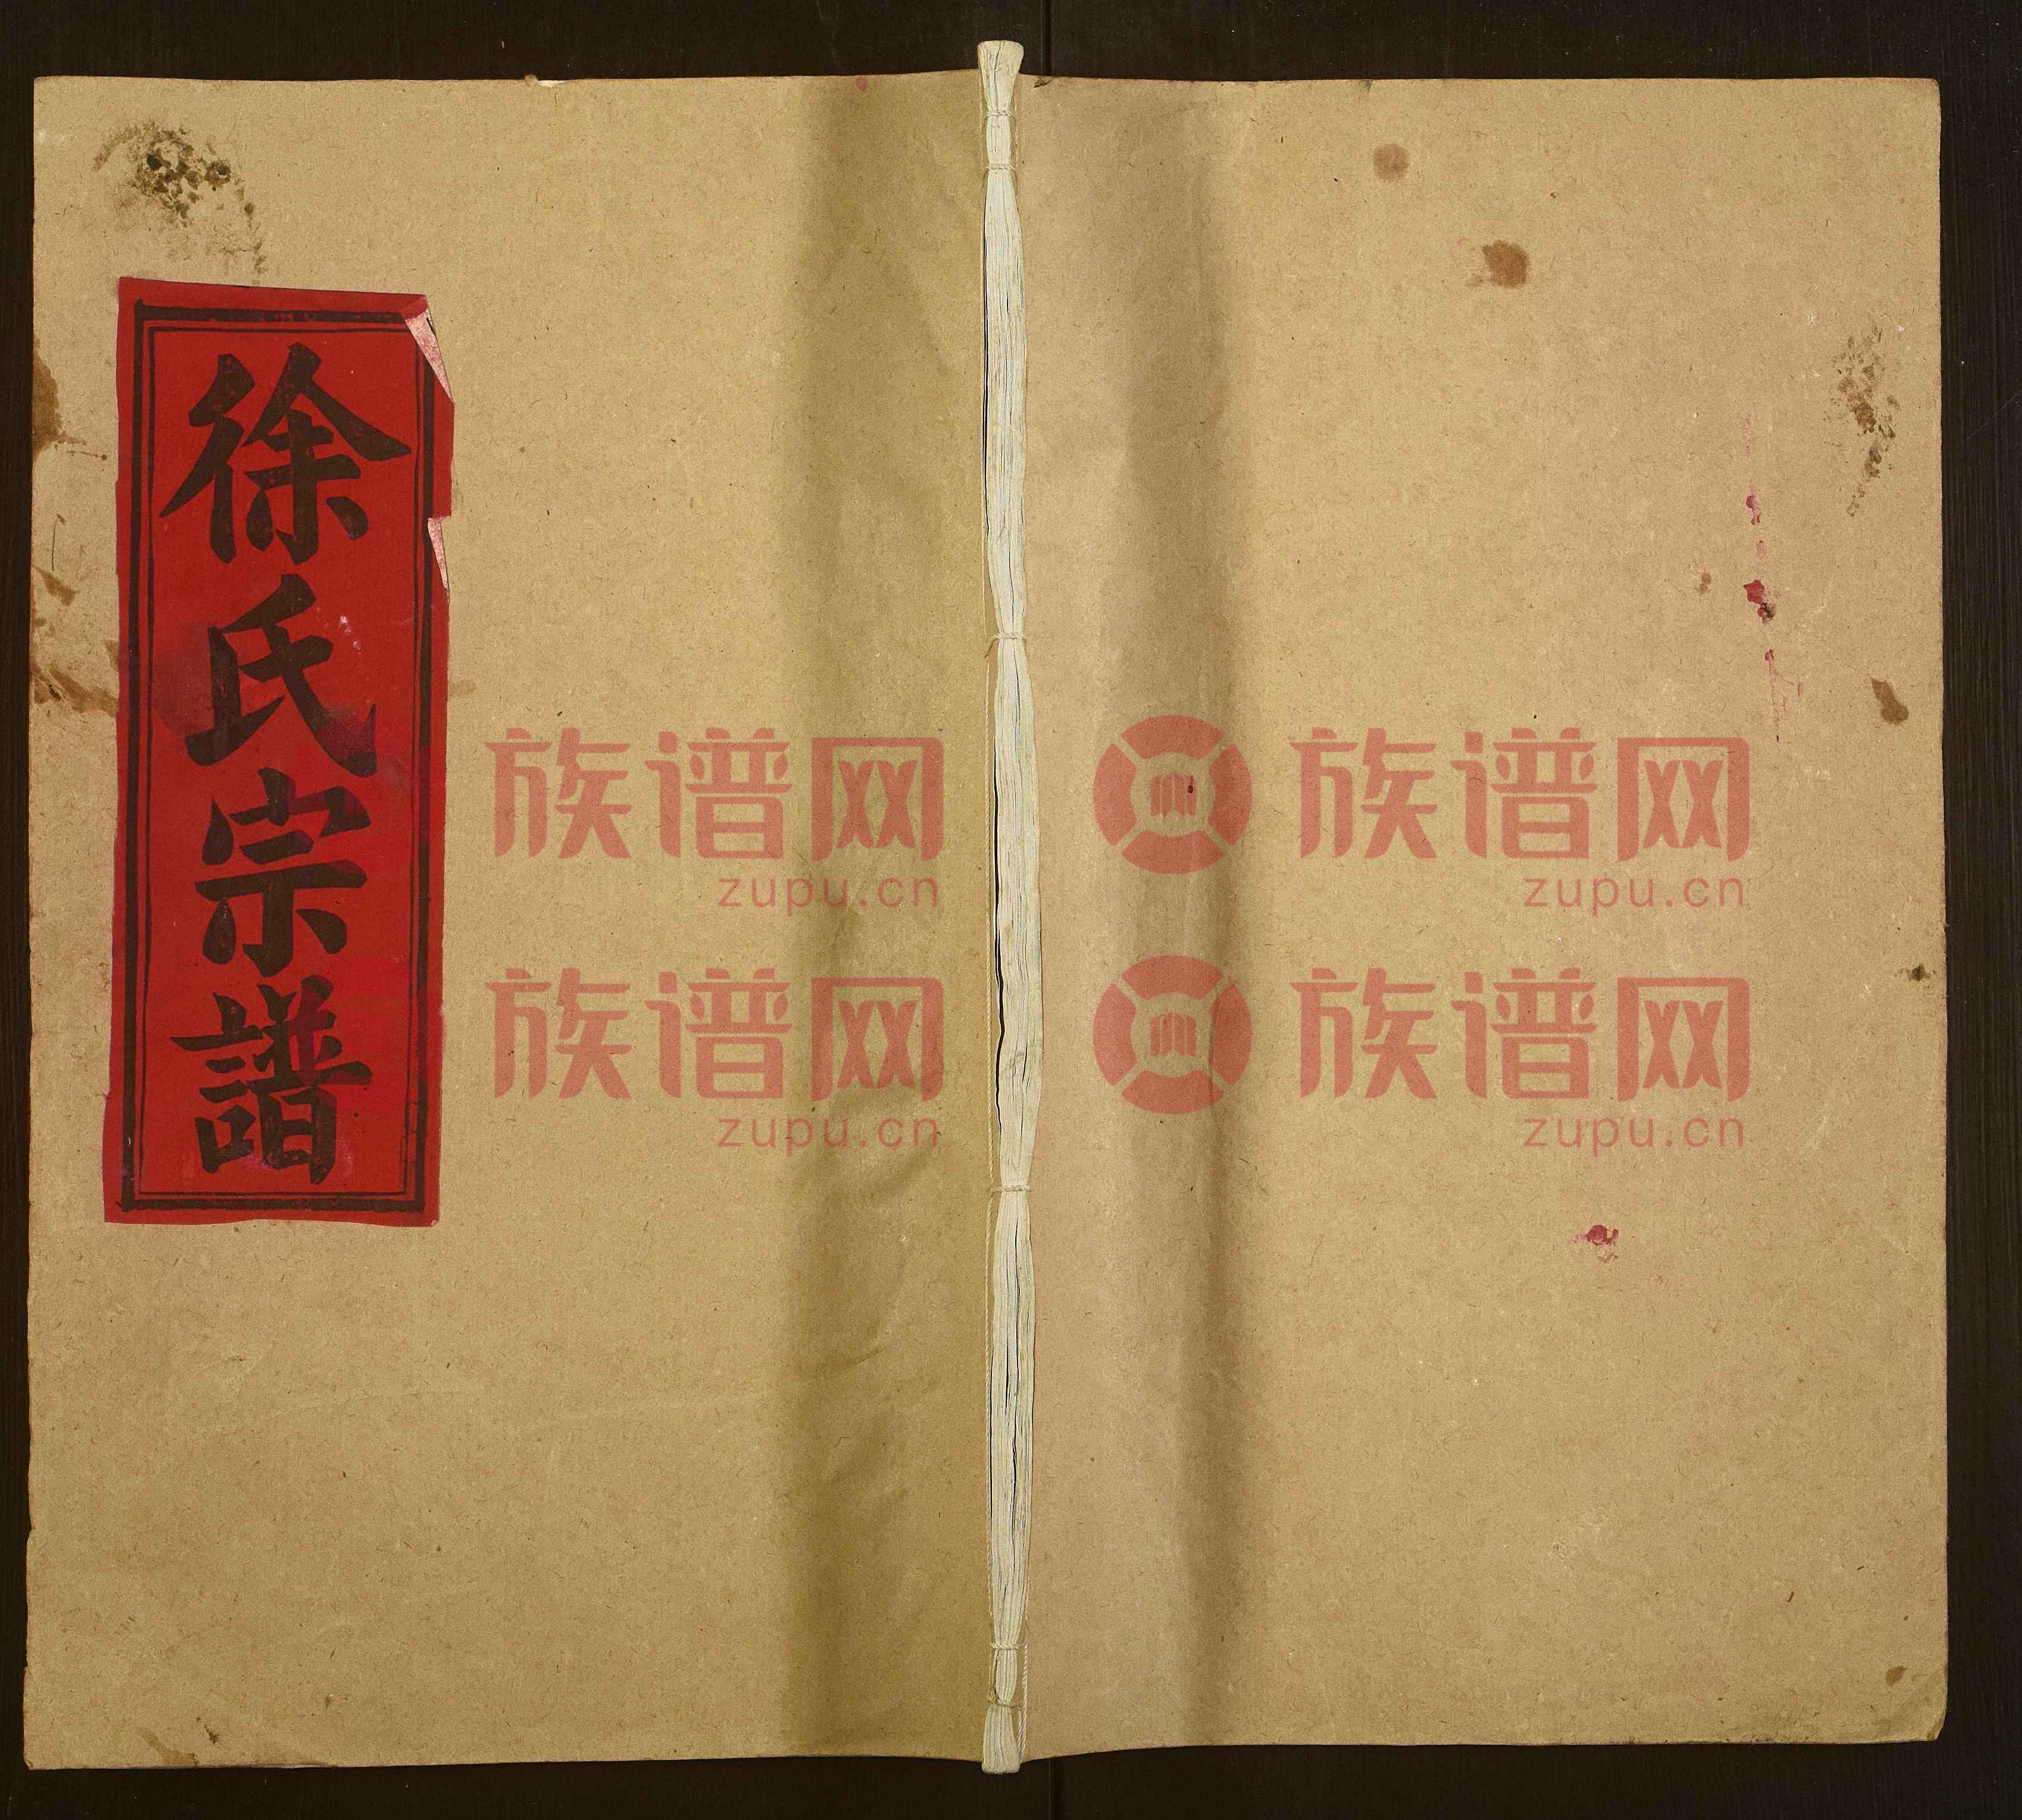 徐氏宗譜
族谱网 族谱网
zupu.cn zupu.cn
族谱网 族谱网
zupu.cn zupu.cn